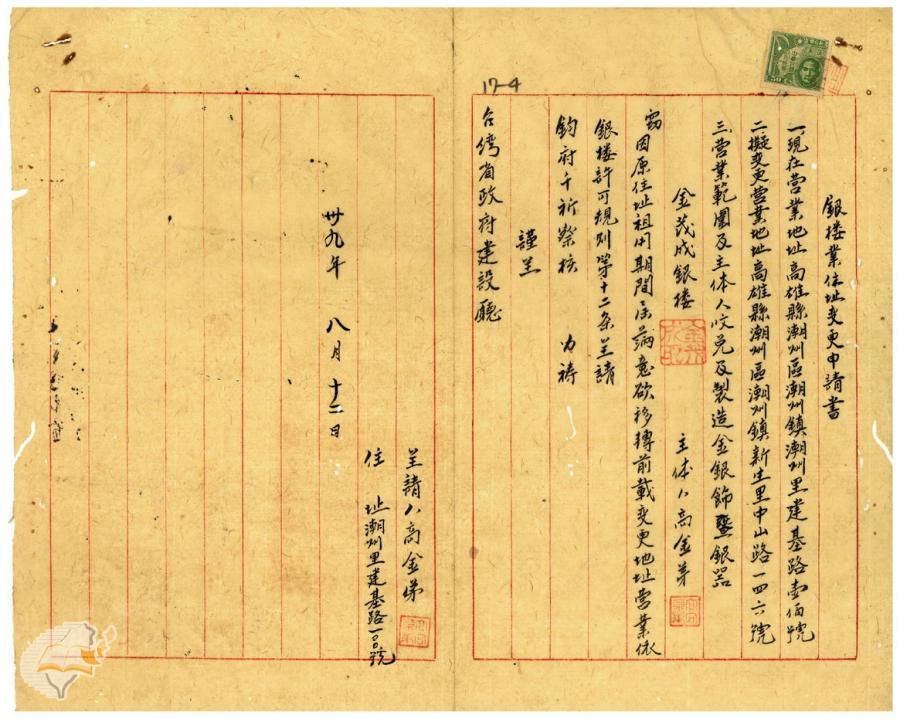 17-4
銀楼業住址变更申請書
一、現在营業地址高雄縣潮州區潮州鎮潮州里建基路壹佰號
二、擬变更营業地址高雄縣潮州區潮州鎮新生里中山路一四六號
三、营業範圍及主体人
兑及製造金銀飾
銀器
金茂成銀楼
主体人高金
窃因原住址祖用期間
意欲移轉前載变更地址营業依
銀楼許可規則第十二条呈請
鈞府千祈察核
为祷
謹呈
台湾省政府建設廳
卅九年 八月 十二日
呈請人高金
住址潮州里建基路一〇〇號